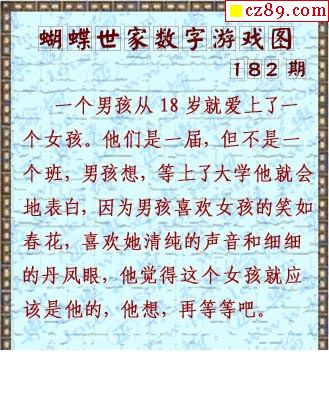 cz89.com
蝴蝶世家数字游戏图
182期
一个男孩从18岁就爱上了一
个女孩。他们是一届，但不是一
个班，男孩想，等上了大学他就会
地表白，因为男孩喜欢女孩的笑如
春花，喜欢她清纯的声音和细细
的丹凤眼，他觉得这个女孩就应
该是他的，他想，再等等吧。